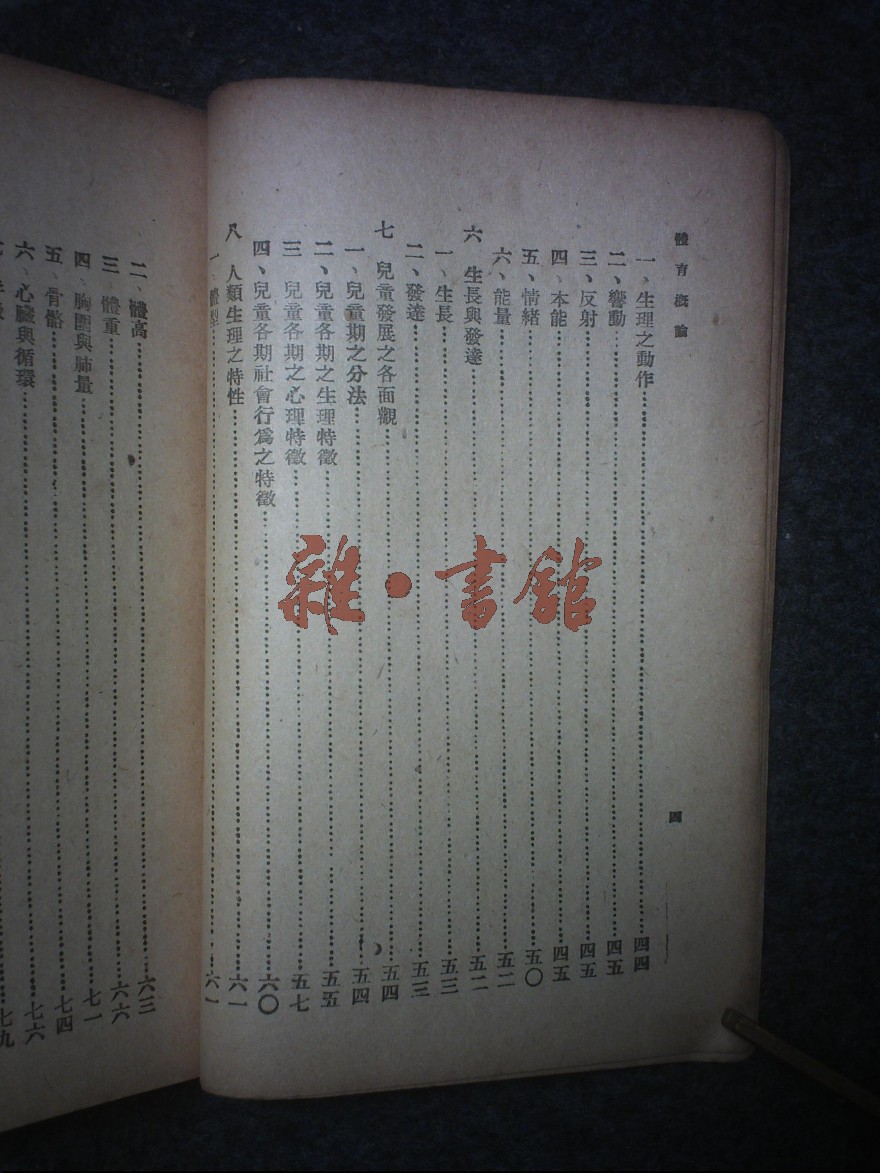 體育概論
四
一、生理之動作……四四
二、響動……四五
三、反射……四五
四、本能……四五
五、情緒……五〇
六、能量……五二
六 生長與發達……五二
一、生長……五三
二、發達……五三
七 兒童發展之各面觀……五四
一、兒童期之分法……五四
二、兒童各期之生理特徵……五五
三、兒童各期之心理特徵……五七
四、兒童各期社會行為之特徵……六〇
八 人類生理之特性……六一
一、體型……六一
二、體高……六三
三、體重……六六
四、胸圍與肺量……七一
五、骨骼……七四
六、心臟與循環……七六
七九
雜·書館